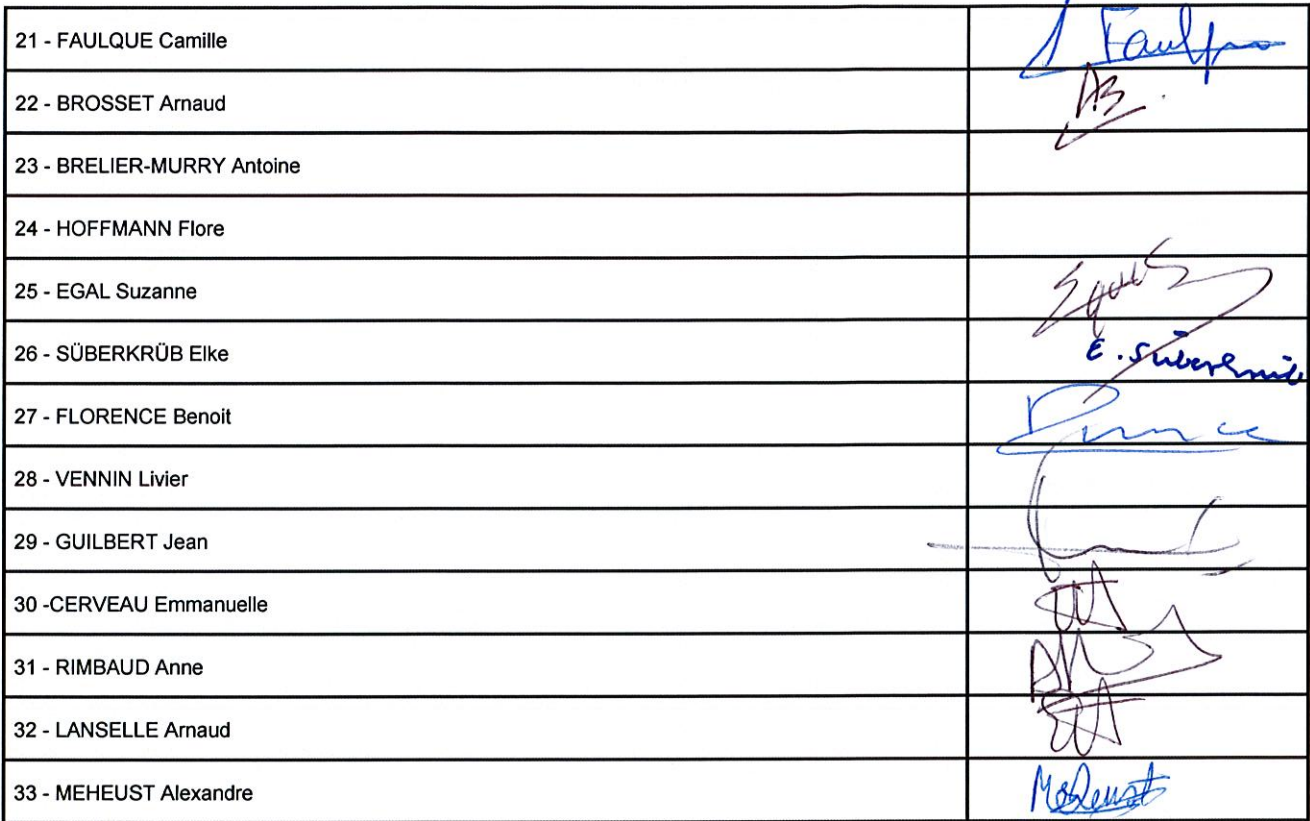 21 - FAULQUE Camille
22 - BROSSET Arnaud
AB.
23 - BRELIER-MURRY Antoine
24 - HOFFMANN Flore
25 - EGAL Suzanne
26 - SÜBERKRÜB Elke
E. Süberkrüb
27 - FLORENCE Benoit
28 - VENNIN Livier
29 - GUILBERT Jean
30 -CERVEAU Emmanuelle
31 - RIMBAUD Anne
32 - LANSELLE Arnaud
33 - MEHEUST Alexandre
Meheust